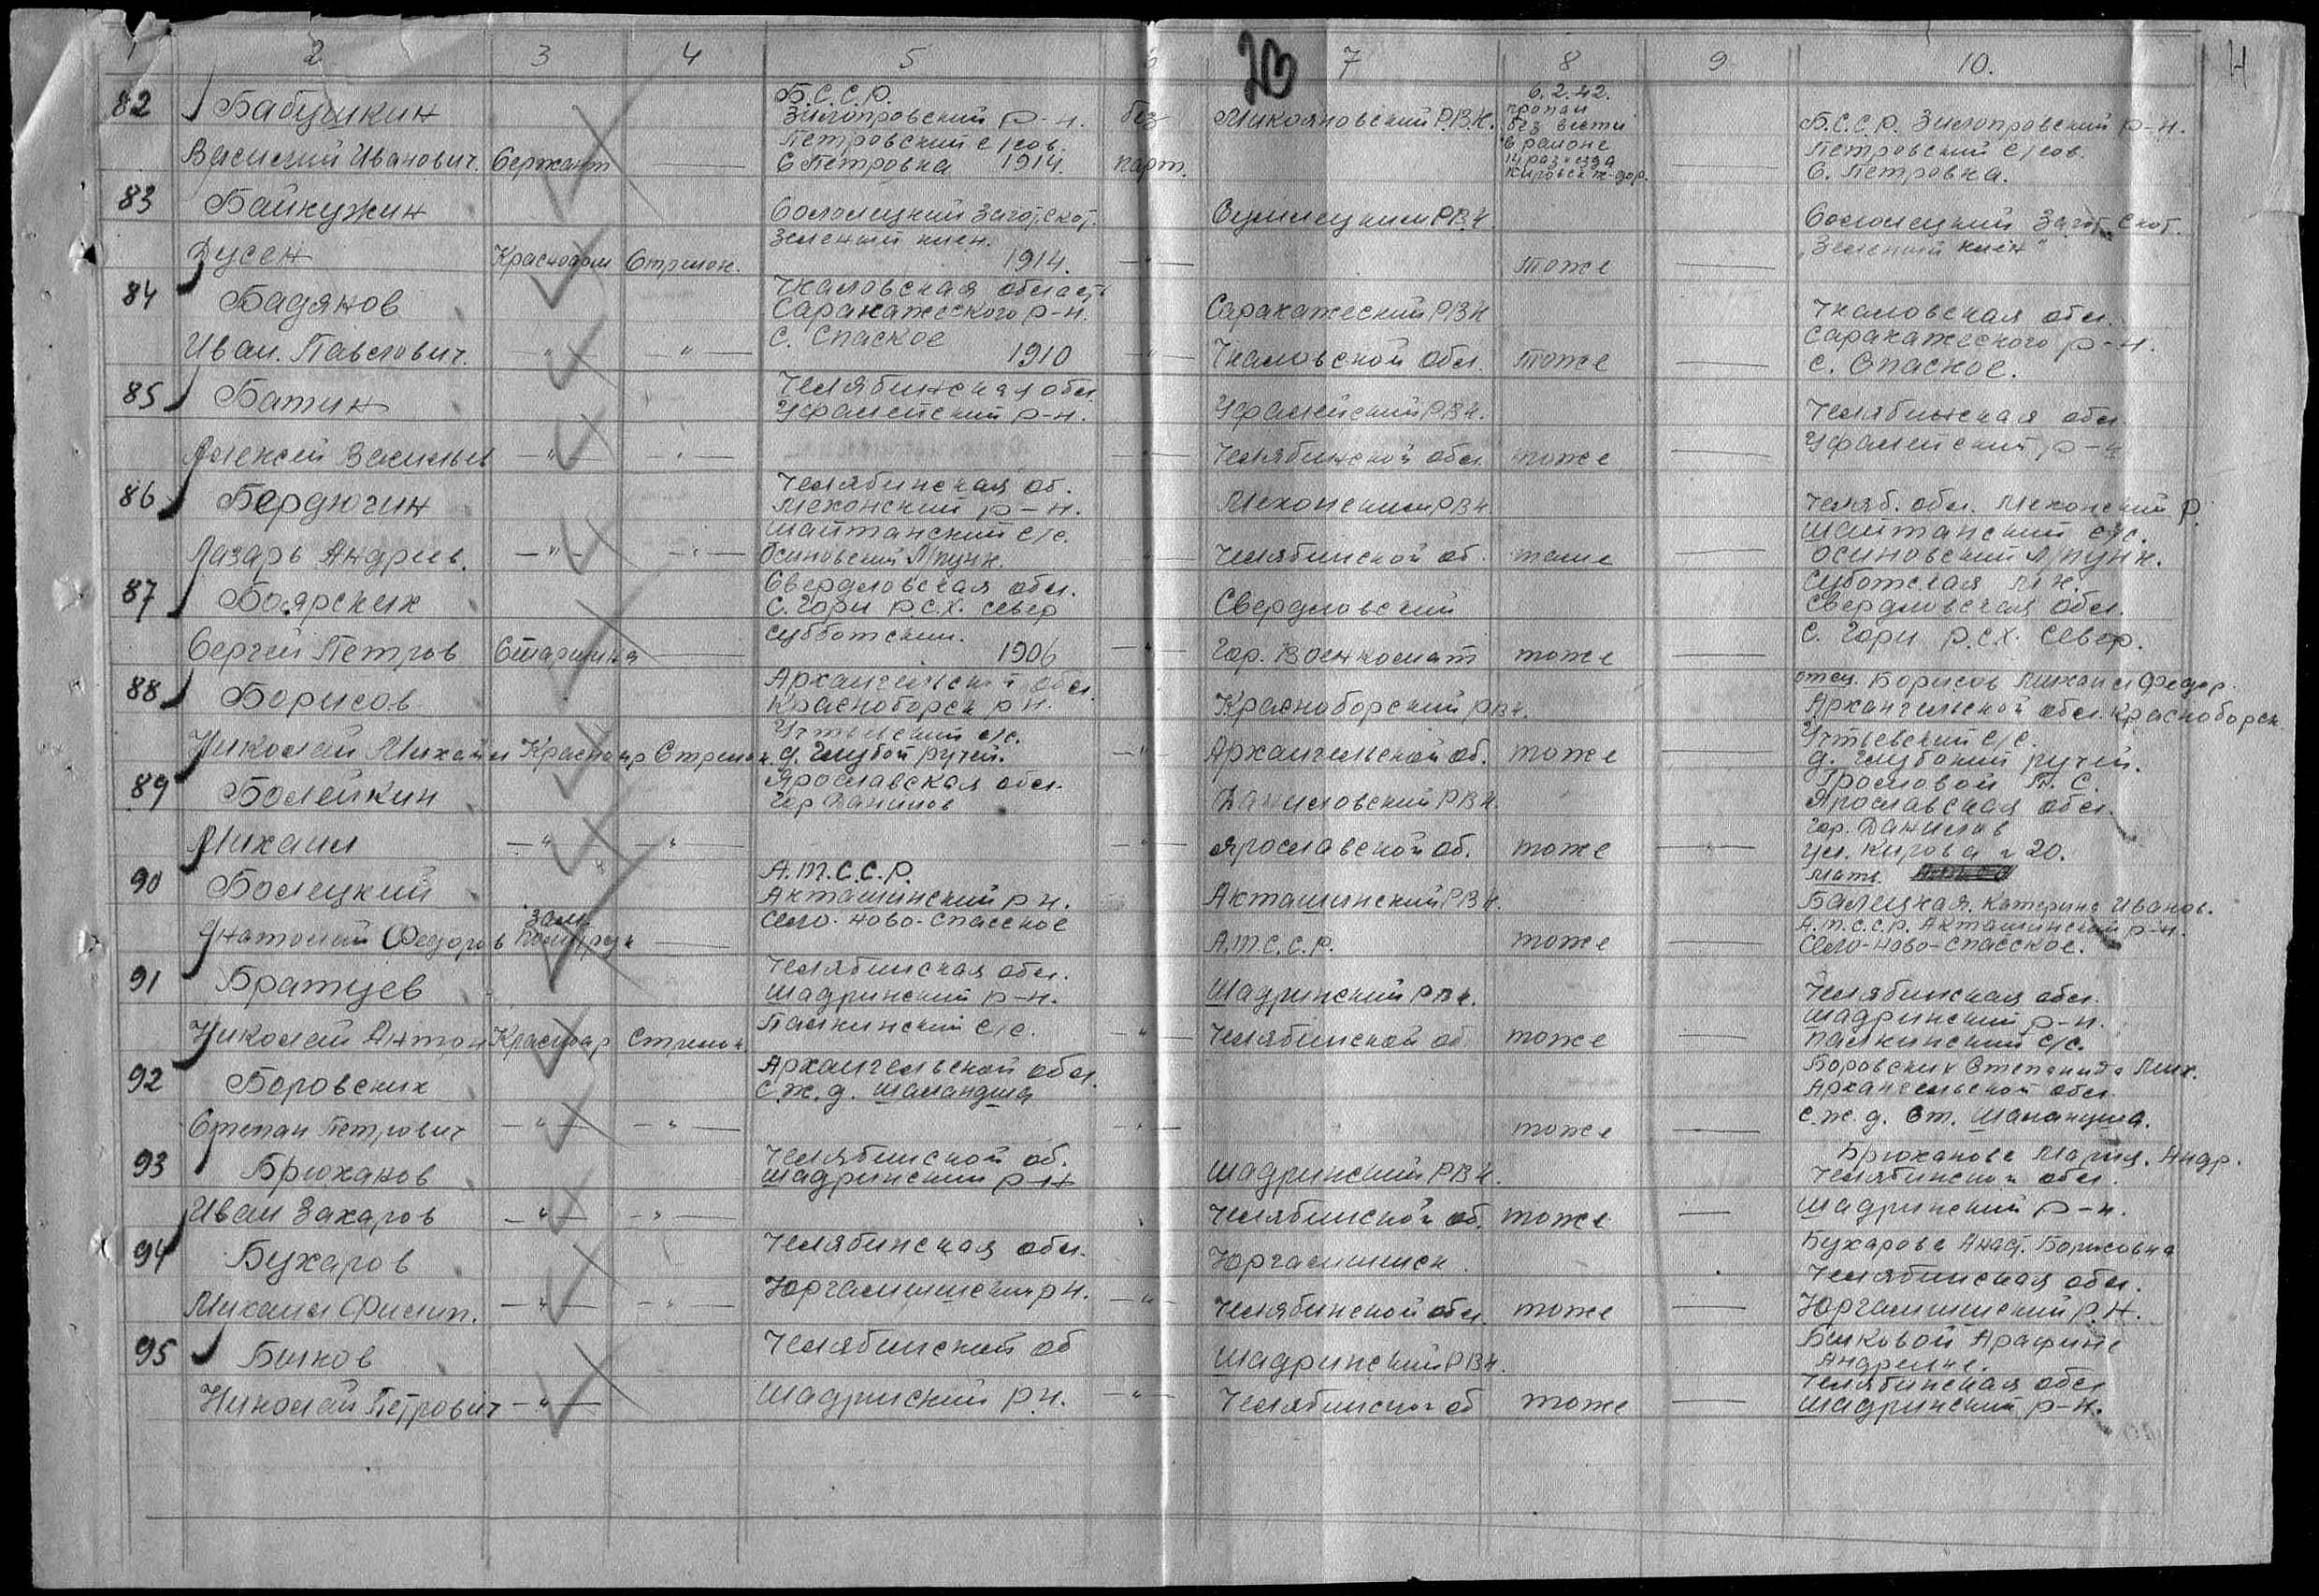 1 2 3 4 5 6 7 8 9 10.
20
82 Бабушкин
Василий Иванович. Сержант
Б.С.С.Р.
Зилопровский р-н.
Петровский с/сов.
С Петровка 1914.
без
парт.
Микояновский Р.В.К.
6.2.42.
пропал
без вести
в районе
14 раз'езда
Кировск ж-дор.
Б.С.С.Р. Зилопровский р-н.
Петровский с/сов.
С. Петровка.
83 Байкужин
Дусен Красноарм Стрелок.
Соломецкий Загот.скот.
Зеленый клен.
1914. -"-
РВК.
тоже
Соломецкий Загот. Скот.
„Зеленый клен"
84 Бадянов
Иван. Павлович. -"- -"-
Чкаловская област
Саракажеского р-н.
с. Спаское
1910 -"-
Саракажеский РВК
Чкаловской обл. тоже
Чкаловская обл.
Саракажеского р-н.
с. Спаское.
85 Батин
Алексей Васильев -"- -"-
Челябинская обл
Уфалейский р-н.
Уфалейский Р.В.К.
Челябинской обл. тоже
Челябинская обл
Уфалейский р-н
86 Бердюгин
Лазарь Андреев. -"- -"-
Челябинская об.
Мехонский р-н.
Шайтанский с/с.
Осиновский Л/пунк.
Мехонский РВК
Челябинской об. тоже
Челяб. обл. Мехонский Р.
Шайтанский с/с.
Осиновский Л/пунк.
87 Боярских
Сергей Петров Старшина
Свердловская обл.
С. Гори р.с.х. север
субботский.
1906 -"-
Свердловский
Гор. Военкомат тоже
Суботская М.Н.
Свердловская обл.
С. Гори р.с.х. Север.
88 Борисов
Николай Михайл Красноар Стрелок
Архангельской обл.
Красноборск р н.
Устьевский с/с.
д. Глубой ручей.
-"-
Красноборский РВК.
Архангельской об. тоже
отец. Борисов Михаил Федор.
Архангельской обл. Красноборск
Устьевский с/с.
д. Глубокий ручей.
89 Болейкин
Михаил -"- -"-
Ярославская обл.
Гор Данилов
-"-
Даниловский РВК.
Ярославской об. тоже
Громовой Т. С.
Ярославская обл.
Гор. Данилов
ул. Кирова 20.
90 Болецкий
Анатолий Федоров зам. политрук
А.Т.С.С.Р.
Акташинский р н.
Село. Ново-Спасское
Акташинский РВК.
А.Т.С.С.Р. тоже
мать.
Балецкая. Катерина Иванов.
А.Т.С.С.Р. Акташинский р-н.
Село-Ново-Спасское.
91 Братцев
Николай Антон Красноар Стрелок
Челябинская обл.
Шадринский р-н.
Палкинский с/с.
-"-
Шадринский РВК.
Челябинской об тоже
Челябинская обл.
Шадринский р-н.
Палкинский с/с.
92 Боровских
Степан Петрович -"- -"-
Архангельской обл.
С.ж.д. Шаландша
-"-
тоже
Боровских Степанида Мих.
Архангельской обл
С.ж.д. Ст. Шаландша.
93 Брюханов
Иван Захаров -"- -"-
Челябинской об.
Шадринский р-н
Шадринский РВК.
Челябинской об. тоже
Брюханова Мария. Андр.
Челябинской обл.
Шадринский р-н.
94 Бухаров
Михаил Филип. -"- -"-
Челябинская обл.
Юргамышский р н.
-"-
Юргамышск
Челябинской обл тоже
Бухарова Анаст. Борисовна
Челябинская обл.
Юргамышский р.н.
95 Быков
Николай Петрович -"-
Челябинский об
Шадринский р.н.
-"-
Шадринский РВК.
Челябинской об тоже
Быковой Арафине
Андреевне.
Челябинская обл
Шадринский р-н.